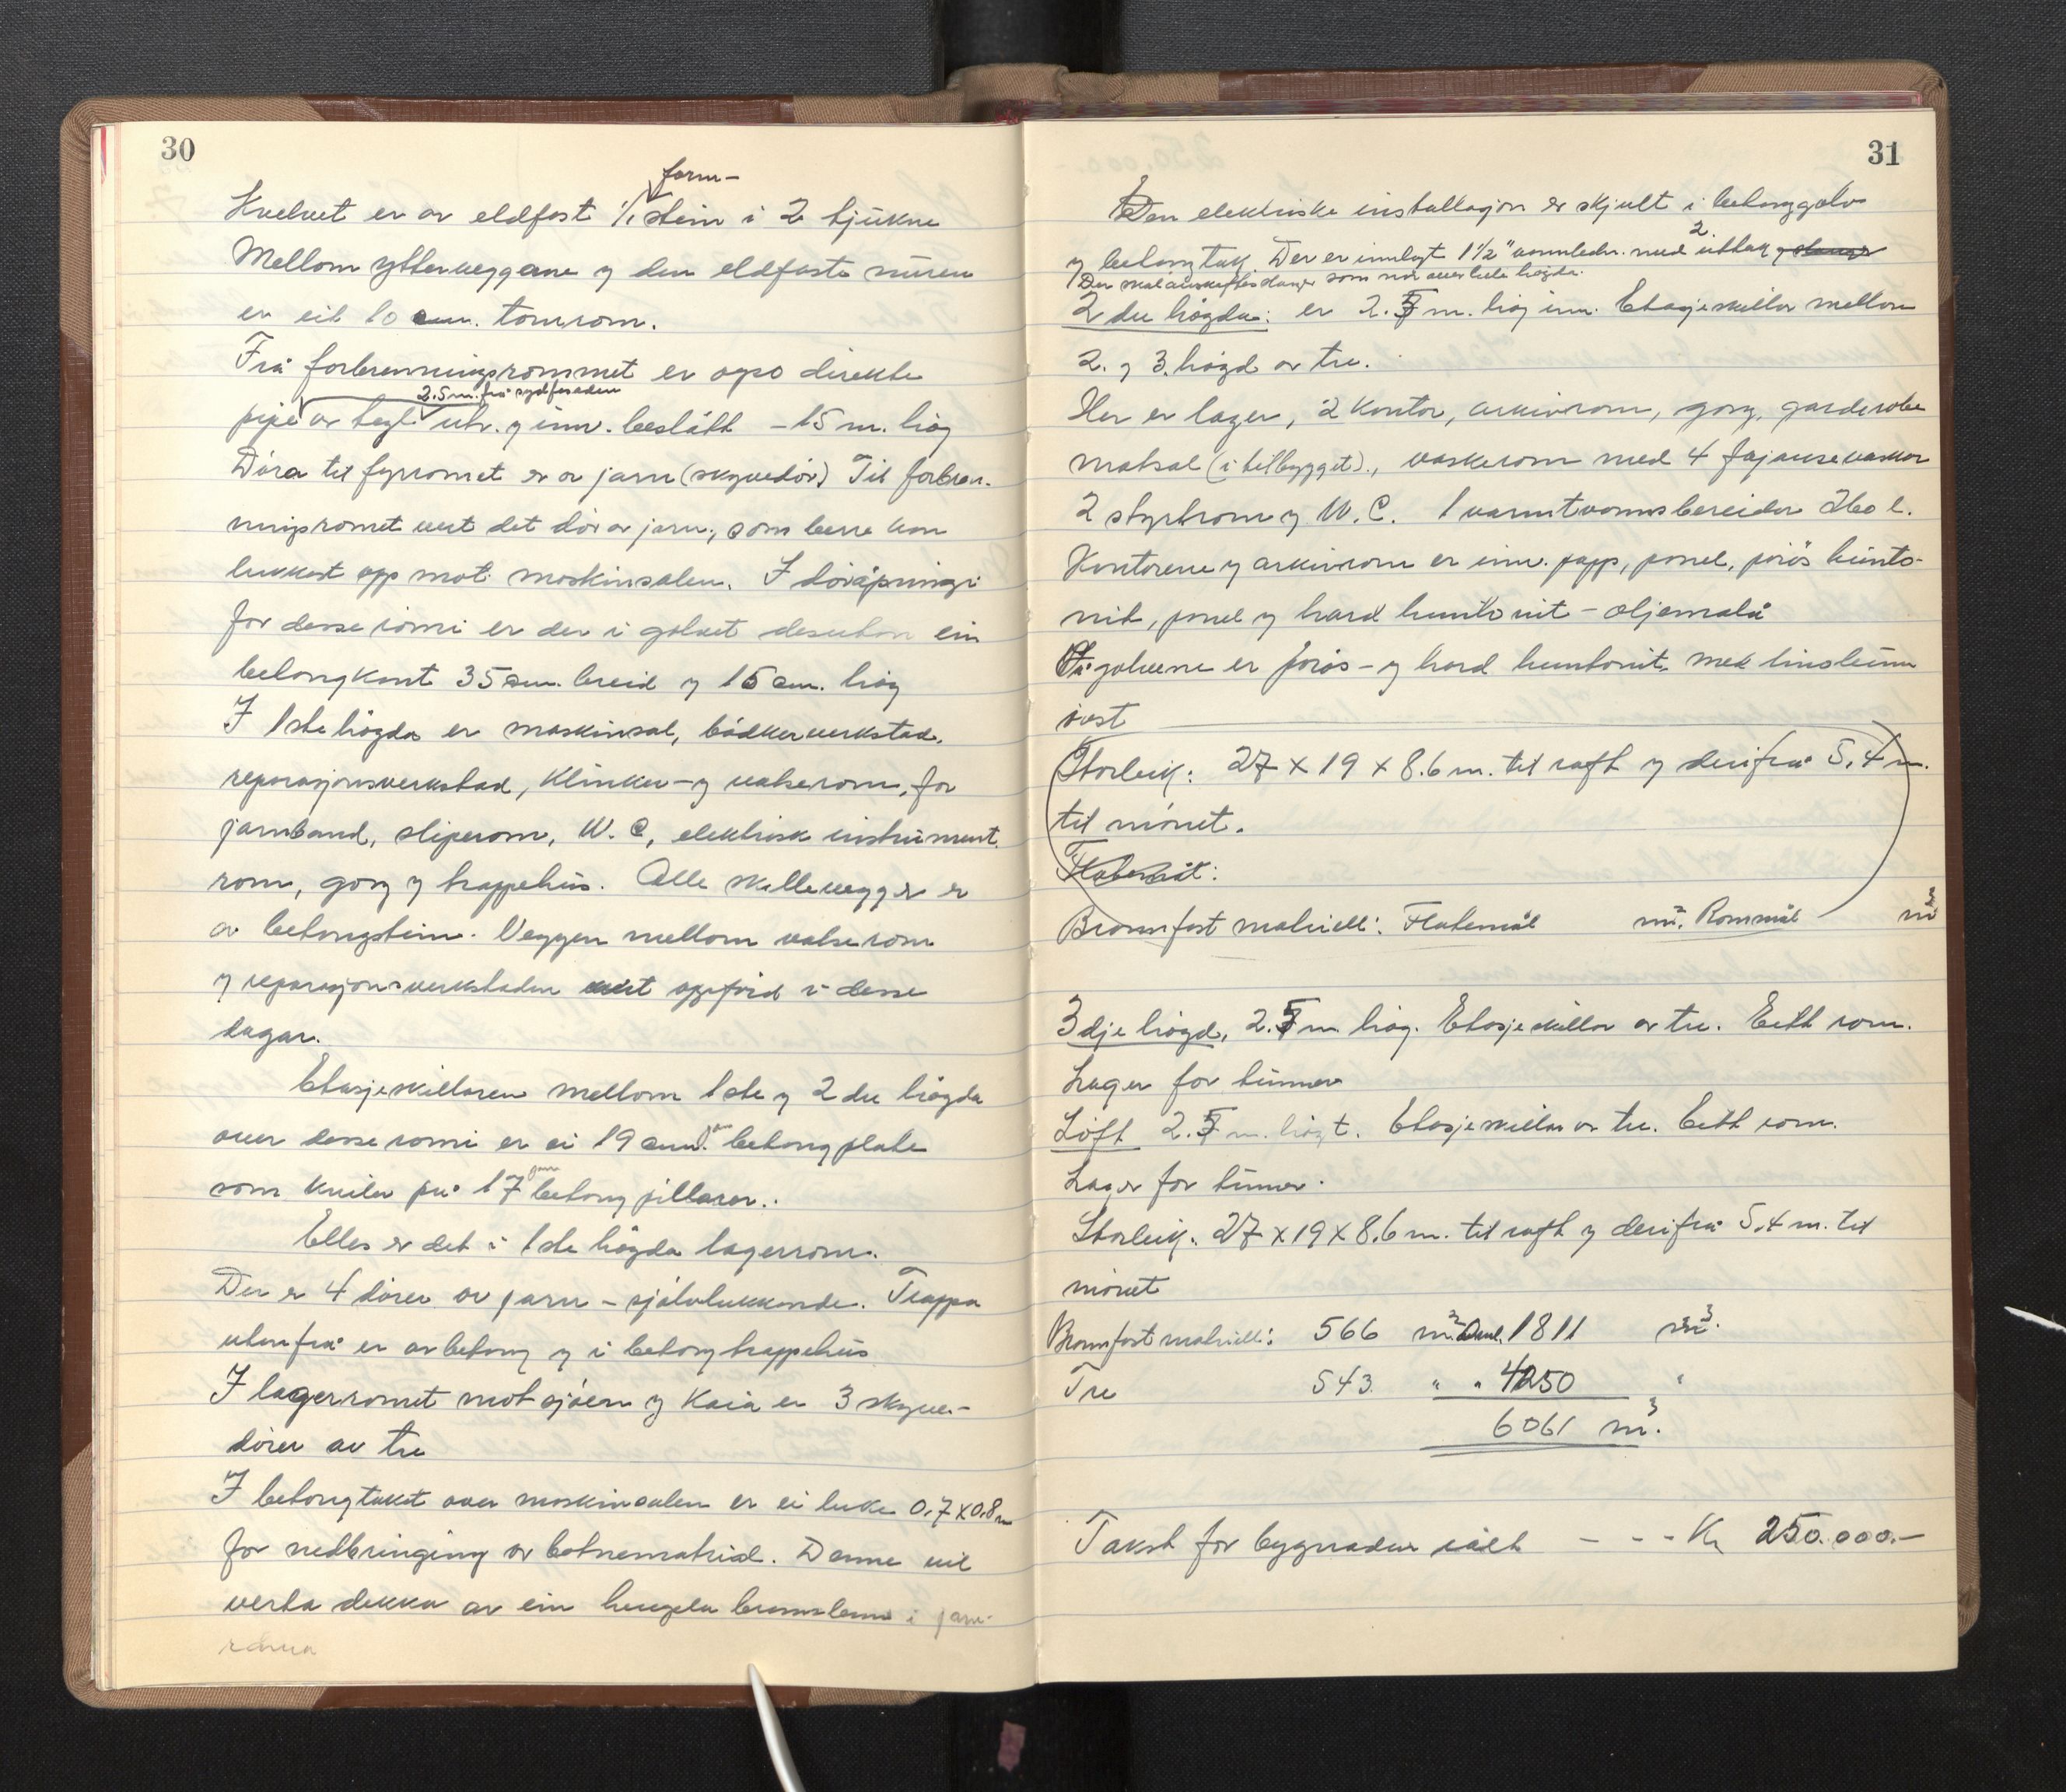 30
form-
Kvelvet er av eldfast 1/1 stein i 2 tjukne
Mellom ytterveggane og den eldfaste muren
er eit 10 cm. tomrom.
Frå forbrenningsrommet er ogso direkte
2.5 m. frå sydfasaden
pipe av tegl utv. og innv. beslått - 15 m. høg
Døra til fyrromet er av jarn (skyvedør) Til forbren-
ningsromet vert det dør av jarn, som berre kan
lukkast opp mot maskinsalen. I døråpningi
for desse romi er der i golvet desutan ein
betongkant 35 cm. breid og 15 cm. høg
I 1ste høgda er maskinsal, bødkerverkstad,
reparasjonsverkstad, klinker- og valserom, for
jarnband, sliperom, W.C, elektrisk instrument
rom, gang og trappehus. Alle skillevegger er
av betongstein. Veggen mellom valserom
og reparasjonsverkstaden vert oppførd i desse
dagar.
Etasjeskillaren mellom 1ste og 2dre høgda
over desse romi er ei 19 cm. jarn betongplate
som kviler på 17 jarn betong pillarer.
Elles er det i 1ste høgda lagerrom.
Der er 4 dører av jarn - sjølvlukkande. Trappa
utanfrå er av betong og i betongtrappehus
I lagerromet mot sjøen og kaia er 3 skyve-
dører av tre
I betongtaket over maskinsalen er ei luke 0,7 x 0,8 m
for nedbringing av botnematrial. Denne vil
verta dekka av ein hengsla brannlem i jarn-
rama
31
Den elektriske installasjon er skjult i betonggolv
2
og betongtak Der er innlagt 1 1/2" vannledn. med uttak og slanger
Der skal anskaffes slanger som når over hele høgda.
2dre høgda: er 2.5 m. høg inn. Etasjeskiller mellom
2. og 3. høgd av tre.
Her er lager, 2 kontor, arkivrom, gang, garderobe
matsal (i tilbygget)., vaskerom med 4 fajansevasker
2 styrtrom og W.C. 1 varmtvannsbereider 260 l.
Kontorene og arkivrom er innv. papp, panel, porøs hunto-
nit, panel og hard huntonit - oljemala
På golvene er porøs- og hard huntonit med linoleum
øvst
Storleik: 27 x 19 x 8.6 m. til raft og derifrå 5,4 m.
til mønet.
Flatemål:
Brannfast matriell: Flatemål m². Rommål m³
3dje høgd, 2.5 m. høg. Etasjeskillar av tre. Eitt rom.
Lager for tunner
Loft 2.5 m. høgt. Etasjeskillar av tre. Eitt rom.
Lager for tunner.
Storleik: 27 x 19 x 8,6 m. til raft og derifrå 5,4 m. til
mønet
Brannfast matriell: 566 m² 1811 m³.
Tre 543 " " 4250 "
6061 m³.
Takst for bygnaden ialt - - - Kr 250.000.-